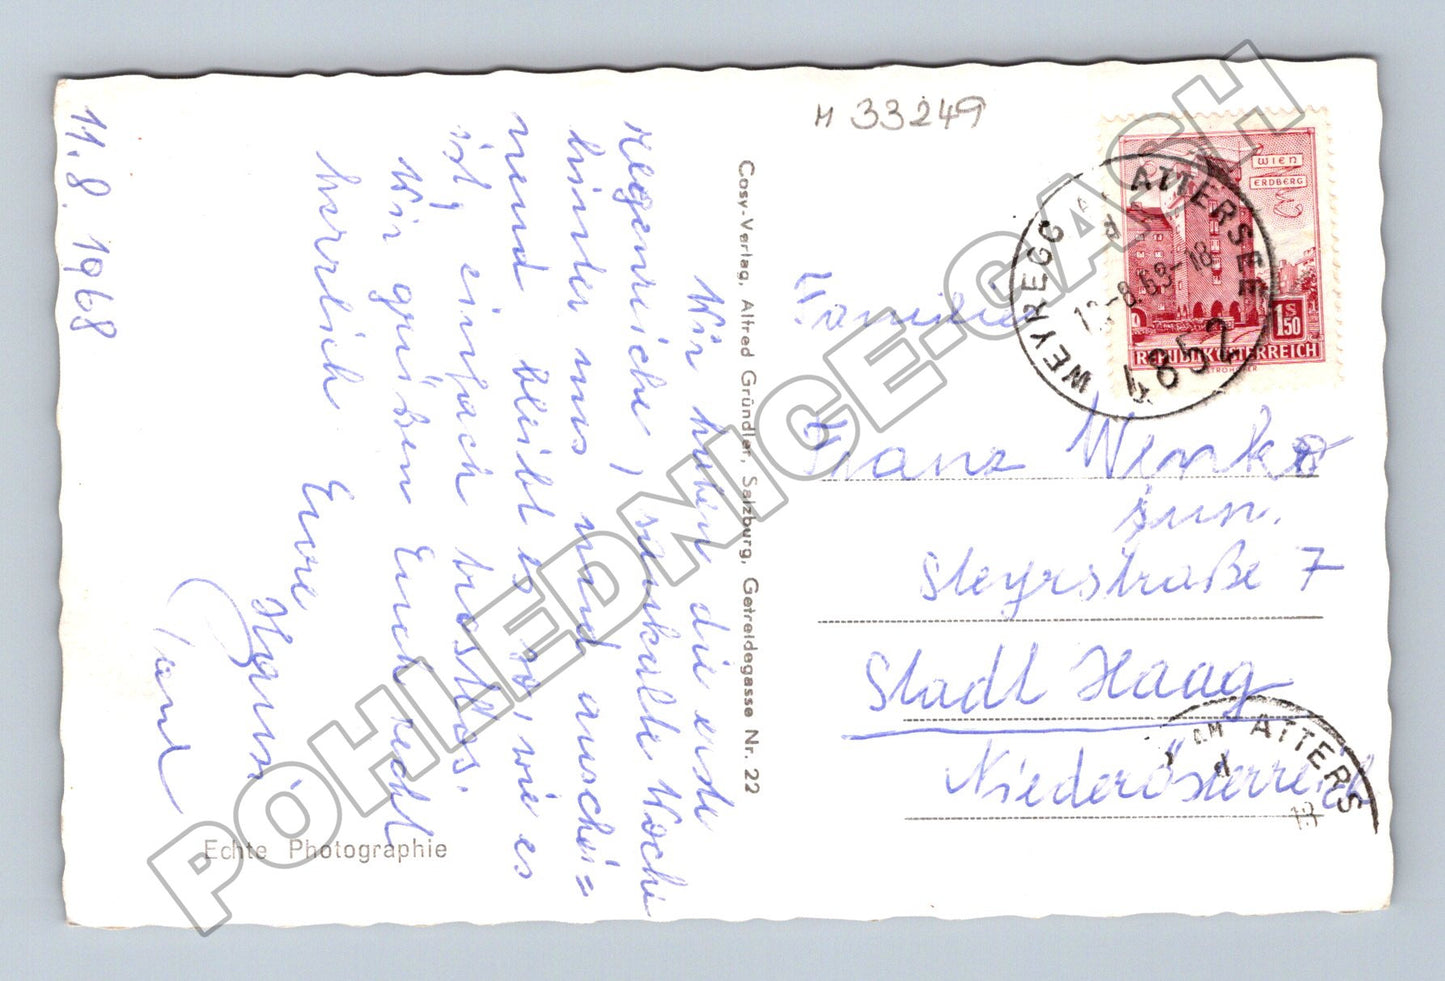 11.8.1968
Wir haben die erste
regenreiche, saukalte Woche
hinter uns und anschei=
nend bleibt es so, wie es
ist, einfach trostlos.
Wir grüßen Euch recht
herzlich
Eure
Hansi
Cosy-Verlag, Alfred Gründler, Salzburg, Getreidegasse Nr. 22
Echte Photographie
M 33249
WIEN
ERDBERG
S
1.50
REPUBLIK ÖSTERREICH
WEYREGG AM ATTERSEE
-8.68-18
4852
Familie
Franz
jun.
Steyrstraße 7
Stadt Haag
Niederösterreich
AM ATTERS
18
POHLEDNICE-CASH